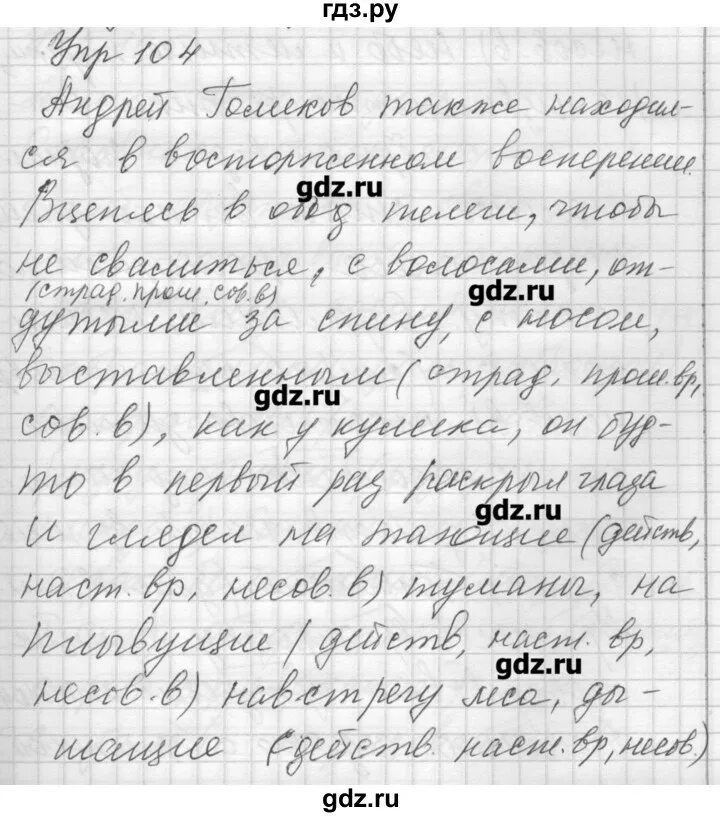 гдз.ру
Упр 104
Андрей Голиков также находил-
ся в восторженном восперении.
gdz.ru
Вцепясь в обод телеги, чтобы
не свалиться, с волосами, от-
gdz.ru
(страд. прош. сов. в)
дутыми за спину, с носом,
выставленным (страд. прош. вр,
gdz.ru
сов. в), как у кулика, он буд-
то в первый раз раскрыл глаза
gdz.ru
и глядел на тающие (действ,
наст. вр, несов. в) туманы, на
плывущие (действ, наст. вр,
gdz.ru
несов. в) навстрегу леса, ды-
шащие (действ. наст. вр, несов.)
gdz.ru